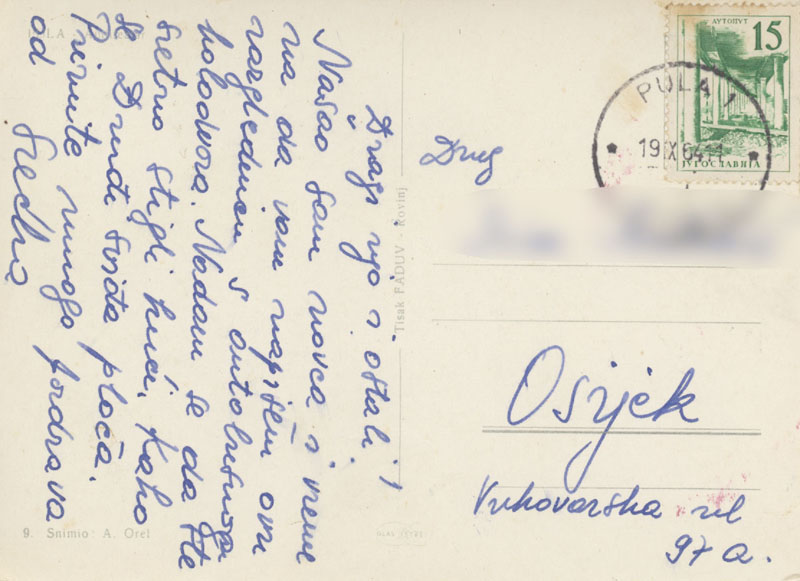 Dragi ujo i ostali!
Našao sam novca i vreme
na da vam napišem ovu
razglednicu s autobusnoga
kolodvora. Nadam se da ste
sretno stigli kući. Kako
je Druđi ploča.
Primite mnogo pozdrava
od
PULA
9. Snimio: A. Orel
Tisak FADUV - Rovinj
АУТОПУТ
15
ЈУГОСЛАВИЈА
PULA 1
19 IX 64 14
Drug
Osijek
Vukovarska ul
97 a.